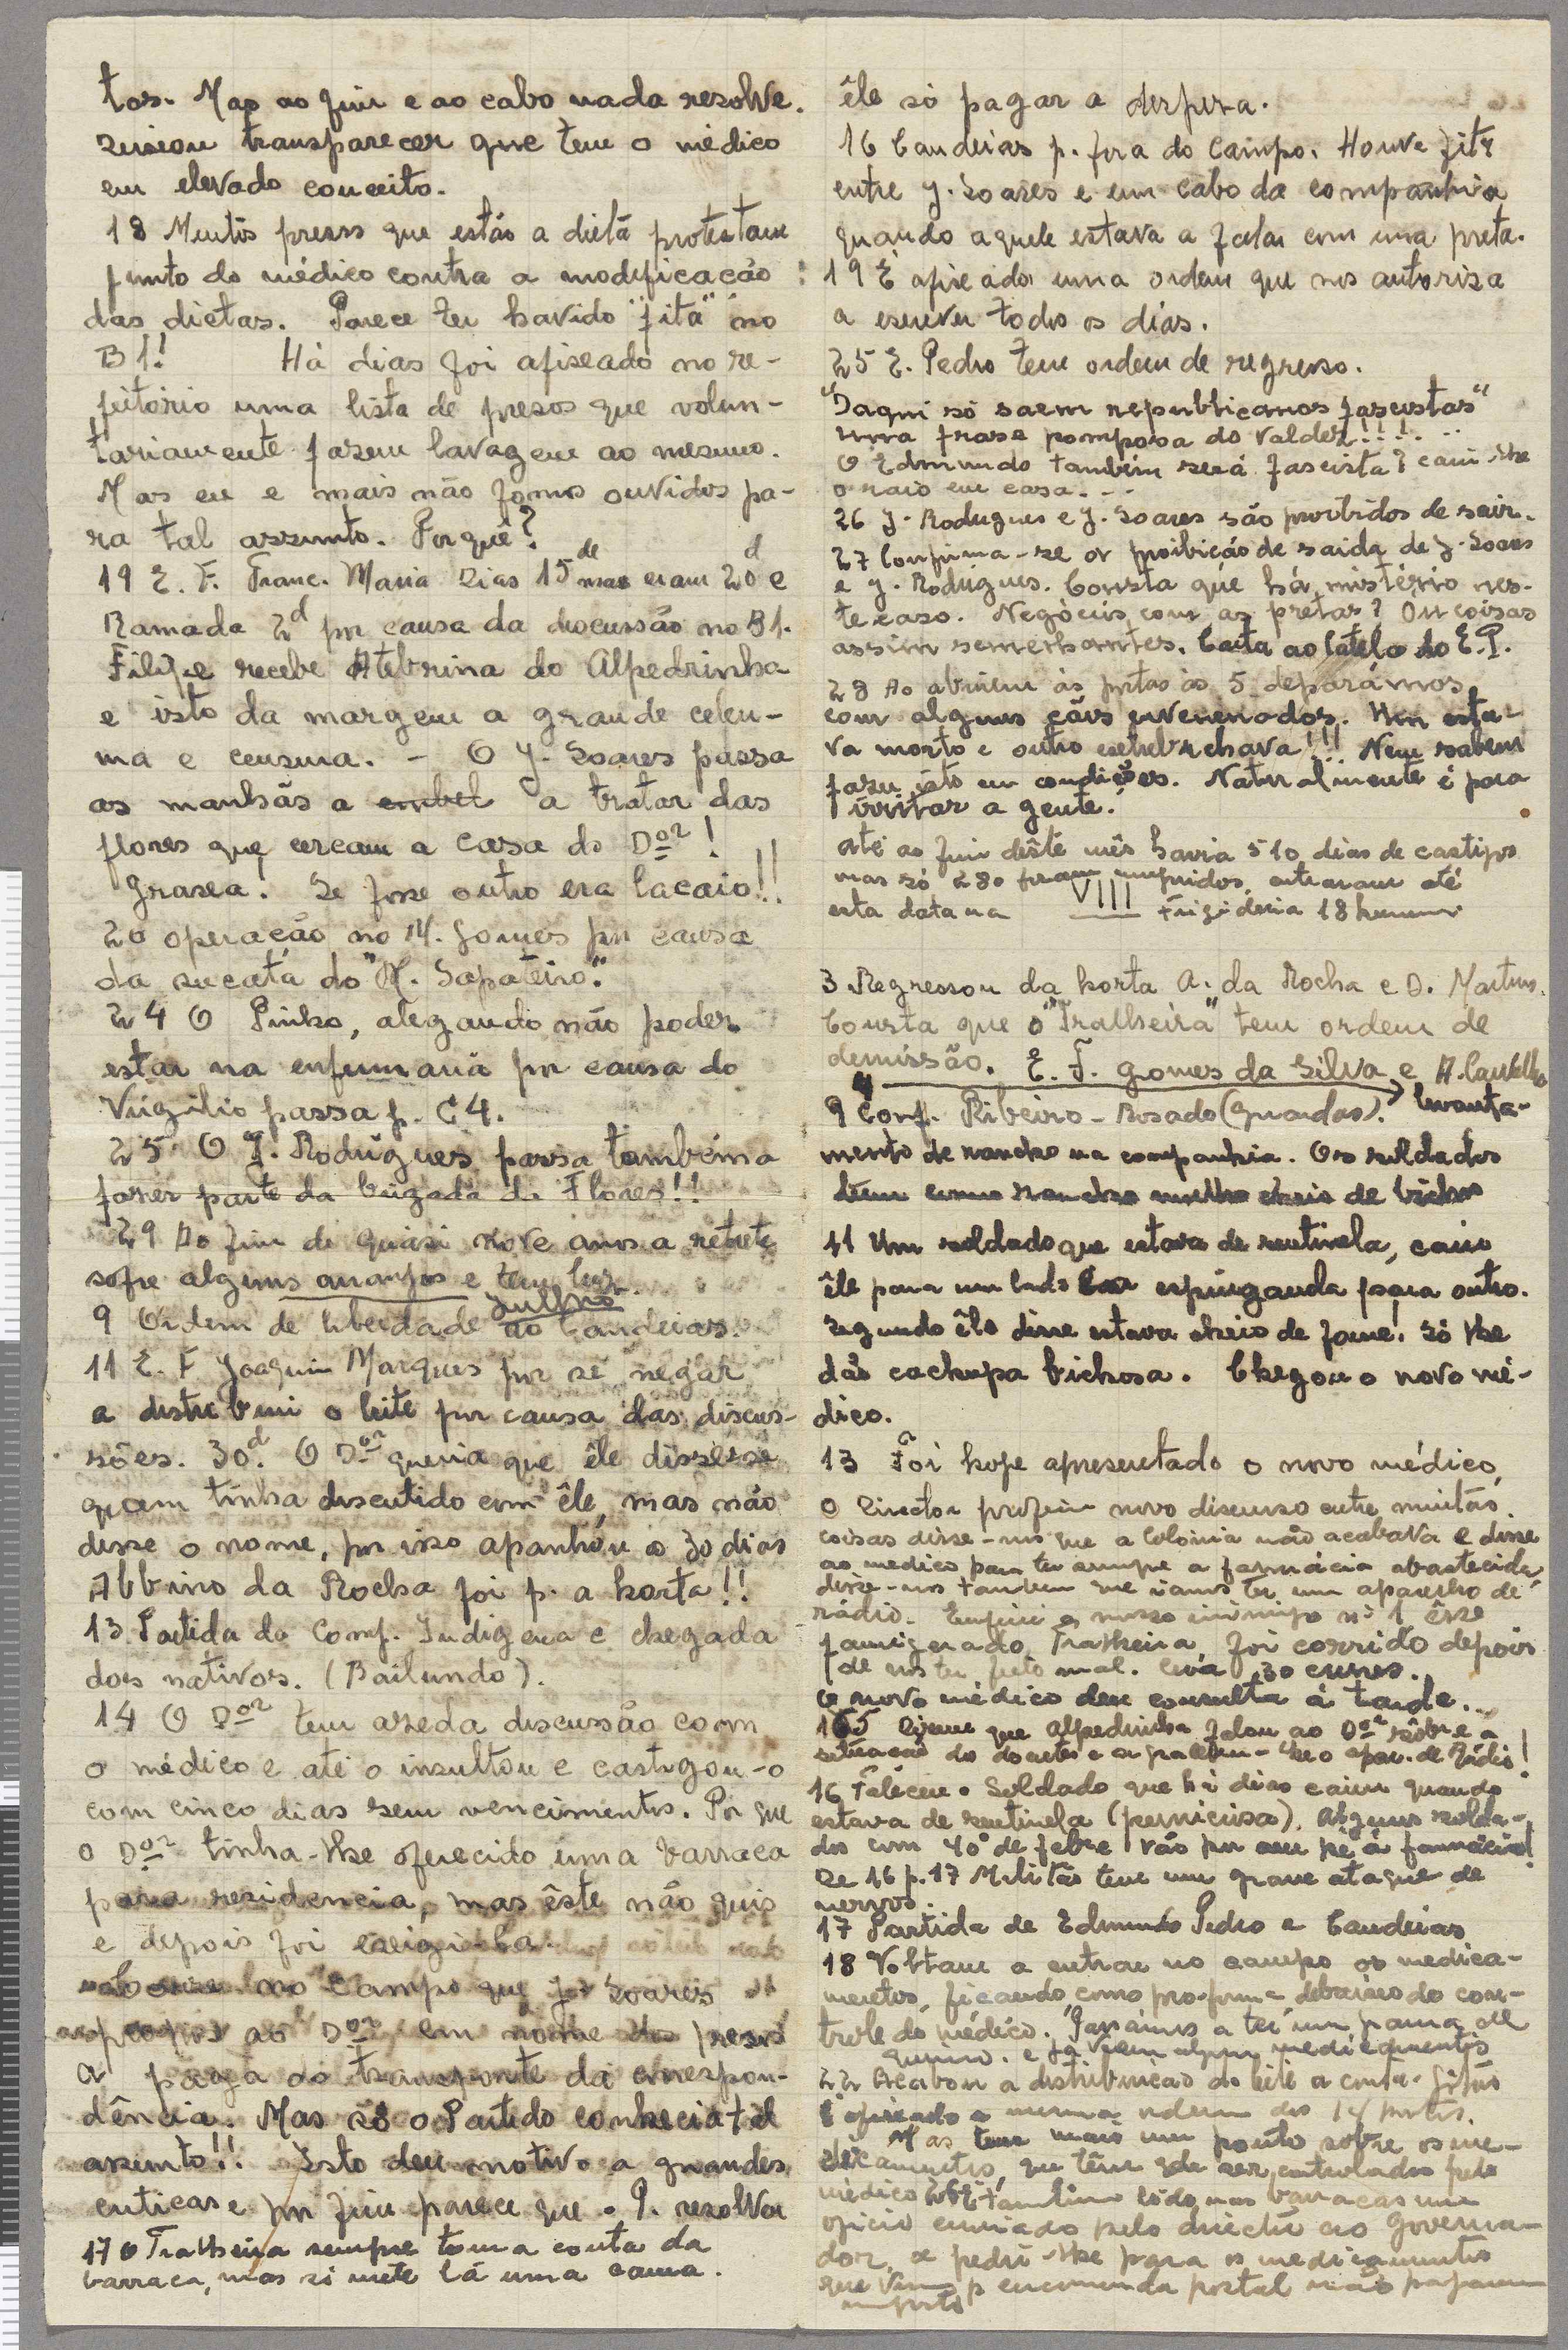 tos. Mas ao fim e ao cabo nada resolve.
transparecer que tem o médico
em elevado conceito.
18 Muitos presos que estão a dieta protestam
junto do médico contra a modificacão
das dietas. Parece ter havido "fita" no
B1! Há dias foi afixado no re-
feitório uma lista de presos que volun-
tariamente fazem lavagem ao mesmo.
Mas eu e mais não fomos ouvidos pa-
ra tal assunto. Porquê?
19 E. F. Franc. Maria Dias 15 de eram 20 d e
Ramada 2d por causa da discussão no B1.
Filipe recebe Atebrina do Alpedrinha
e isto da margem a grande celeu-
ma e censura. - O J. Soares passa
as manhãs a a tratar das
flores que cercam a casa do Dor!
Graxa! Se fosse outro era lacaio!!
20 operacão no M. Gomes por causa
da sucata do "M. Sapateiro".
24 O Pinho, alegando não poder
estar na enfermaria por causa do
Virgilio passa p. C4.
25 O J. Rodrigues passa também a
fazer parte da brigada da Flores!!
29 Ao fim de quási nove anos a retrete
sofre alguns arranjos e tem luz.
Julho
9 Ordem de liberdade ao Candeias.
11 E. F. Joaquim Marques por se negar
a distribuir o leite por causa das discus-
sões. 30d. O Dor queria que êle dissesse
quem tinha discutido com êle, mas não
disse o nome, por isso apanhou os 30 dias
Albino da Rocha foi p. a horta!!
13 Partida da Comp. Indigena e chegada
dos nativos. (Bailundo).
14 O Dor tem azeda discussão com
o médico e até o insultou e castigou-o
com cinco dias sem vencimentos. Por que
o Dor tinha-lhe oferecido uma barraca
para residencia, mas êste não quis
e depois foi exigi-la.
no Campo que J. Soares
ao Dor em nome dos presos
a paga do transporte da correspon-
dência. Mas só o Partido conhecia tal
assunto!! Isto deu motivo a grandes
criticas e por fim parece que o P. resolveu
17 O Tralheira sempre toma conta da
barraca, mas só mete lá uma cama.
êle só pagar a despesa.
16 Candeias p. fora do Campo. Houve fita
entre J. Soares e um cabo da companhia
quando aquele estava a falar com uma preta.
19 É afixado uma ordem que nos autoriza
a escrever todos os dias.
25 E. Pedro tem ordem de regresso.
"Daqui só saem republicanos fascistas"
uma frase pomposa do Valdez!!!...
O Edmundo também será fascista? caiu-lhe
o raio em casa...
26 J. Rodrigues e J. Soares são proibidos de sair.
27 Confirma-se a proibicão de saida de J. Soares
e J. Rodrigues. Consta que há mistério nes-
te caso. Negócios com as pretas? Ou coisas
assim semelhantes. Carta ao Catela do E.P.
28 Ao abrirem as portas às 5 deparámos
com alguns cãos envenenados. Um esta-
va morto e outro estrebuchava!!! Nem sabem
fazer isto em condições. Naturalmente é para
irritar a gente.
Até ao fim dêste mês havia 510 dias de castigos
mas só 280 foram cumpridos, entraram até
esta data na Frigideria 18 homens
VIII
3 Regressou da horta A. da Rocha e D. Martins.
Consta que o "Tralheira" tem ordem de
demissão. E. F. Gomes da Silva e A. Castelho
9 Conf. Ribeiro - Rosado (Guardas). levanta-
mento de rancho na companhia. Os soldados
têm como rancho milho cheio de bichos
11 Um soldado que estava de sentinela, caiu
êle para um lado e a espingarda para outro.
Segundo êle disse estava cheio de fome! Só lhe
dão cachupa bichosa. Chegou o novo mé-
dico.
13 Foi hoje apresentado o novo médico,
O Director proferiu novo discurso entre muitas
coisas disse-nos que a Colonia não acabava e disse
ao medico para ter sempre a farmácia abastecida
disse-nos tambem que iamos ter um aparelho de
rádio. Enfim o nosso inimigo nº 1 êsse
famigerado Tralheira foi corrido depois
de nos ter feito mal. Levá 30 cunes.
O novo médico deu consulta à tarde...
15 Dizem que Alpedrinha falou ao Dor sôbre a
situacão do doentes e agradeceu-lhe o apar. de Rádio!
16 Faleceu o Soldado que há dias caiu quando
estava de sentinela (perniciosa). Alguns solda-
dos com 40º de febre vão por seu pé à farmácia!
De 16 p. 17 Militão teve um grave ataque de
nervos.
17 Partida de Edmundo Pedro e Candeias
18 Voltam a entrar no campo os medica-
mentos, ficando como pro-forma debaixo do con-
trole do médico. Passámos a ter um pama de
quinino. e já vem algum medicamentos
22 Acabou a distribuicão do leite a
É afixado a mesma ordem dos 14 pontos.
Mas tem mais um ponto sobre os me-
dicamentos, que têm que ser controlados pelo
médico 26 É tambem lido nas barracas um
oficio enviado pelo director ao Governa-
dor, a pedir-lhe para os medicamentos
que vem p encomenda postal não pagarem
imposto